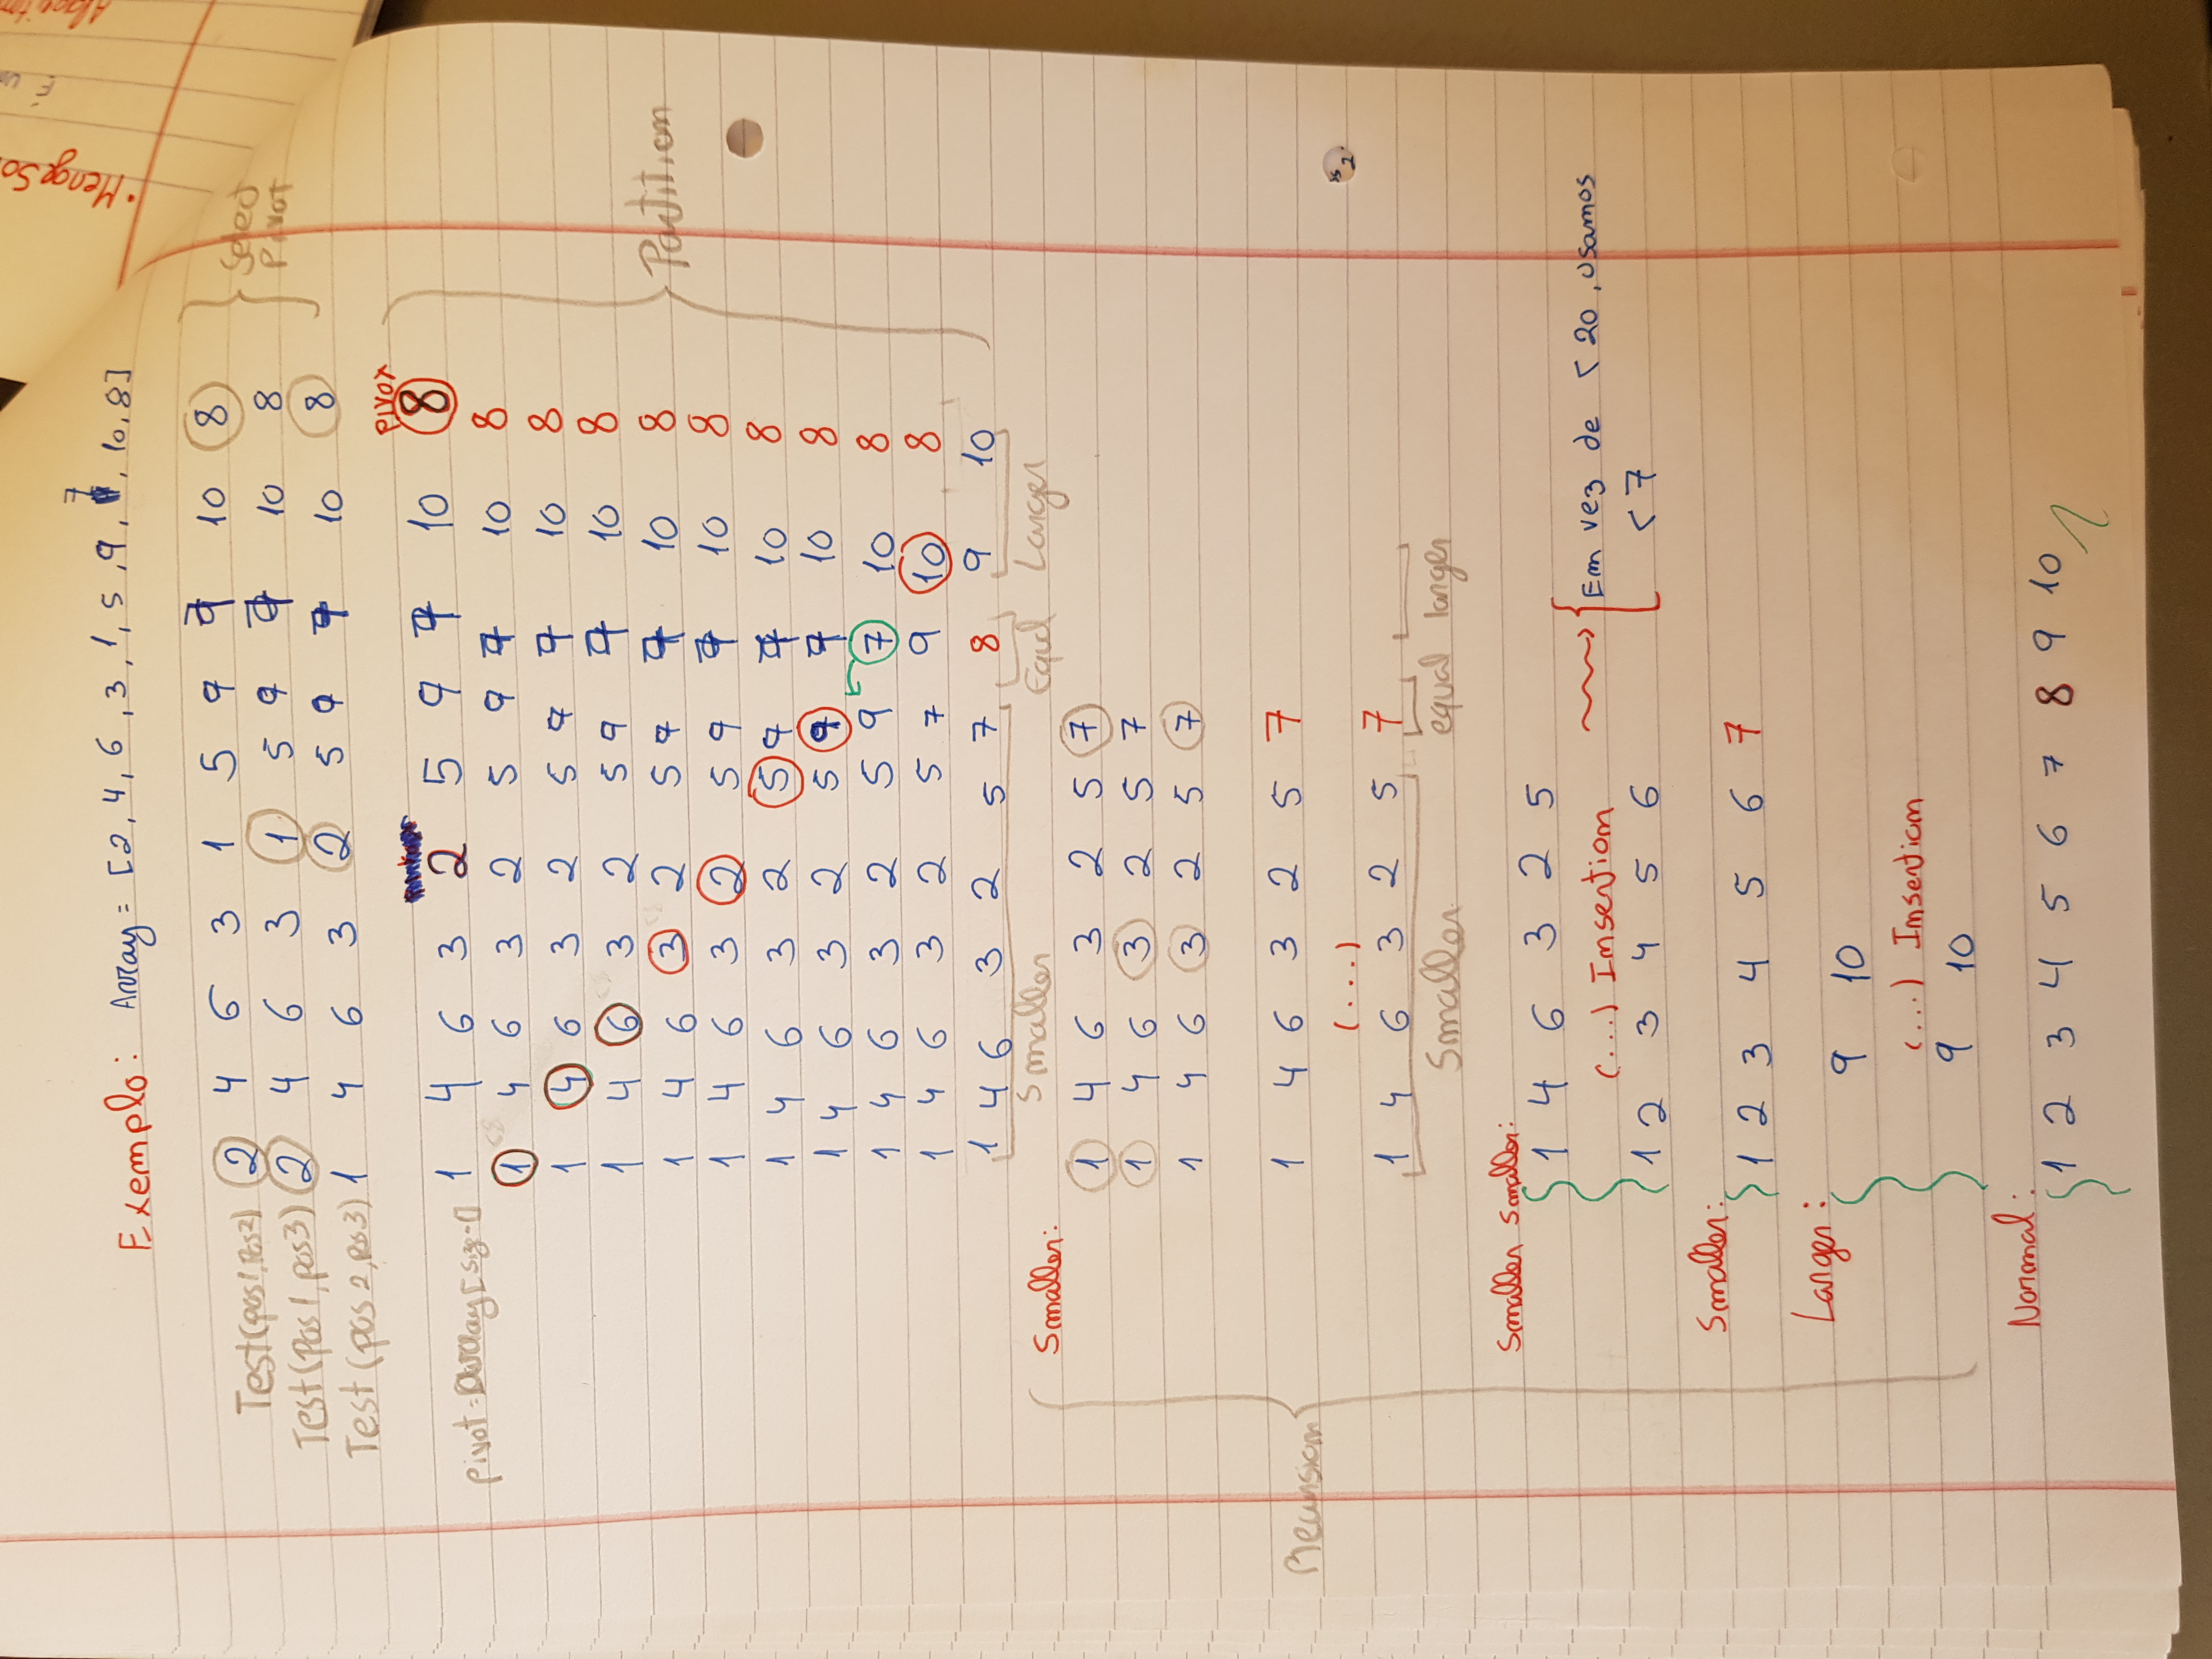 Exemplo: Array = [2, 4, 6, 3, 1, 5, 9, 7, 10, 8]
Test(pos1, pos2) 2 4 6 3 1 5 9 7 10 8
Test(pos1, pos3) 2 4 6 3 1 5 9 7 10 8
Test(pos2, pos3) 1 4 6 3 2 5 9 7 10 8
Select Pivot
pivot
pivot = Array[size-1] 1 4 6 3 2 5 9 7 10 8
1 4 6 3 2 5 9 7 10 8
1 4 6 3 2 5 9 7 10 8
1 4 6 3 2 5 9 7 10 8
1 4 6 3 2 5 9 7 10 8
Partition
1 4 6 3 2 5 9 7 10 8
1 4 6 3 2 5 9 7 10 8
1 4 6 3 2 5 9 7 10 8
1 4 6 3 2 5 9 7 10 8
1 4 6 3 2 5 7 9 10 8
1 4 6 3 2 5 7 8 9 10
Smaller Equal Larger
Smaller:
1 4 6 3 2 5 7
1 4 6 3 2 5 7
1 4 6 3 2 5 7
Recursion
1 4 6 3 2 5 7
(...)
1 4 6 3 2 5 7
Smaller equal larger
Smaller smaller:
1 4 6 3 2 5
(...) Insertion Em vez de < 20, usamos
1 2 3 4 5 6 < 7
Smaller:
1 2 3 4 5 6 7
Larger:
9 10
(...) Insertion
9 10
Normal:
1 2 3 4 5 6 7 8 9 10
• MergeSo
É